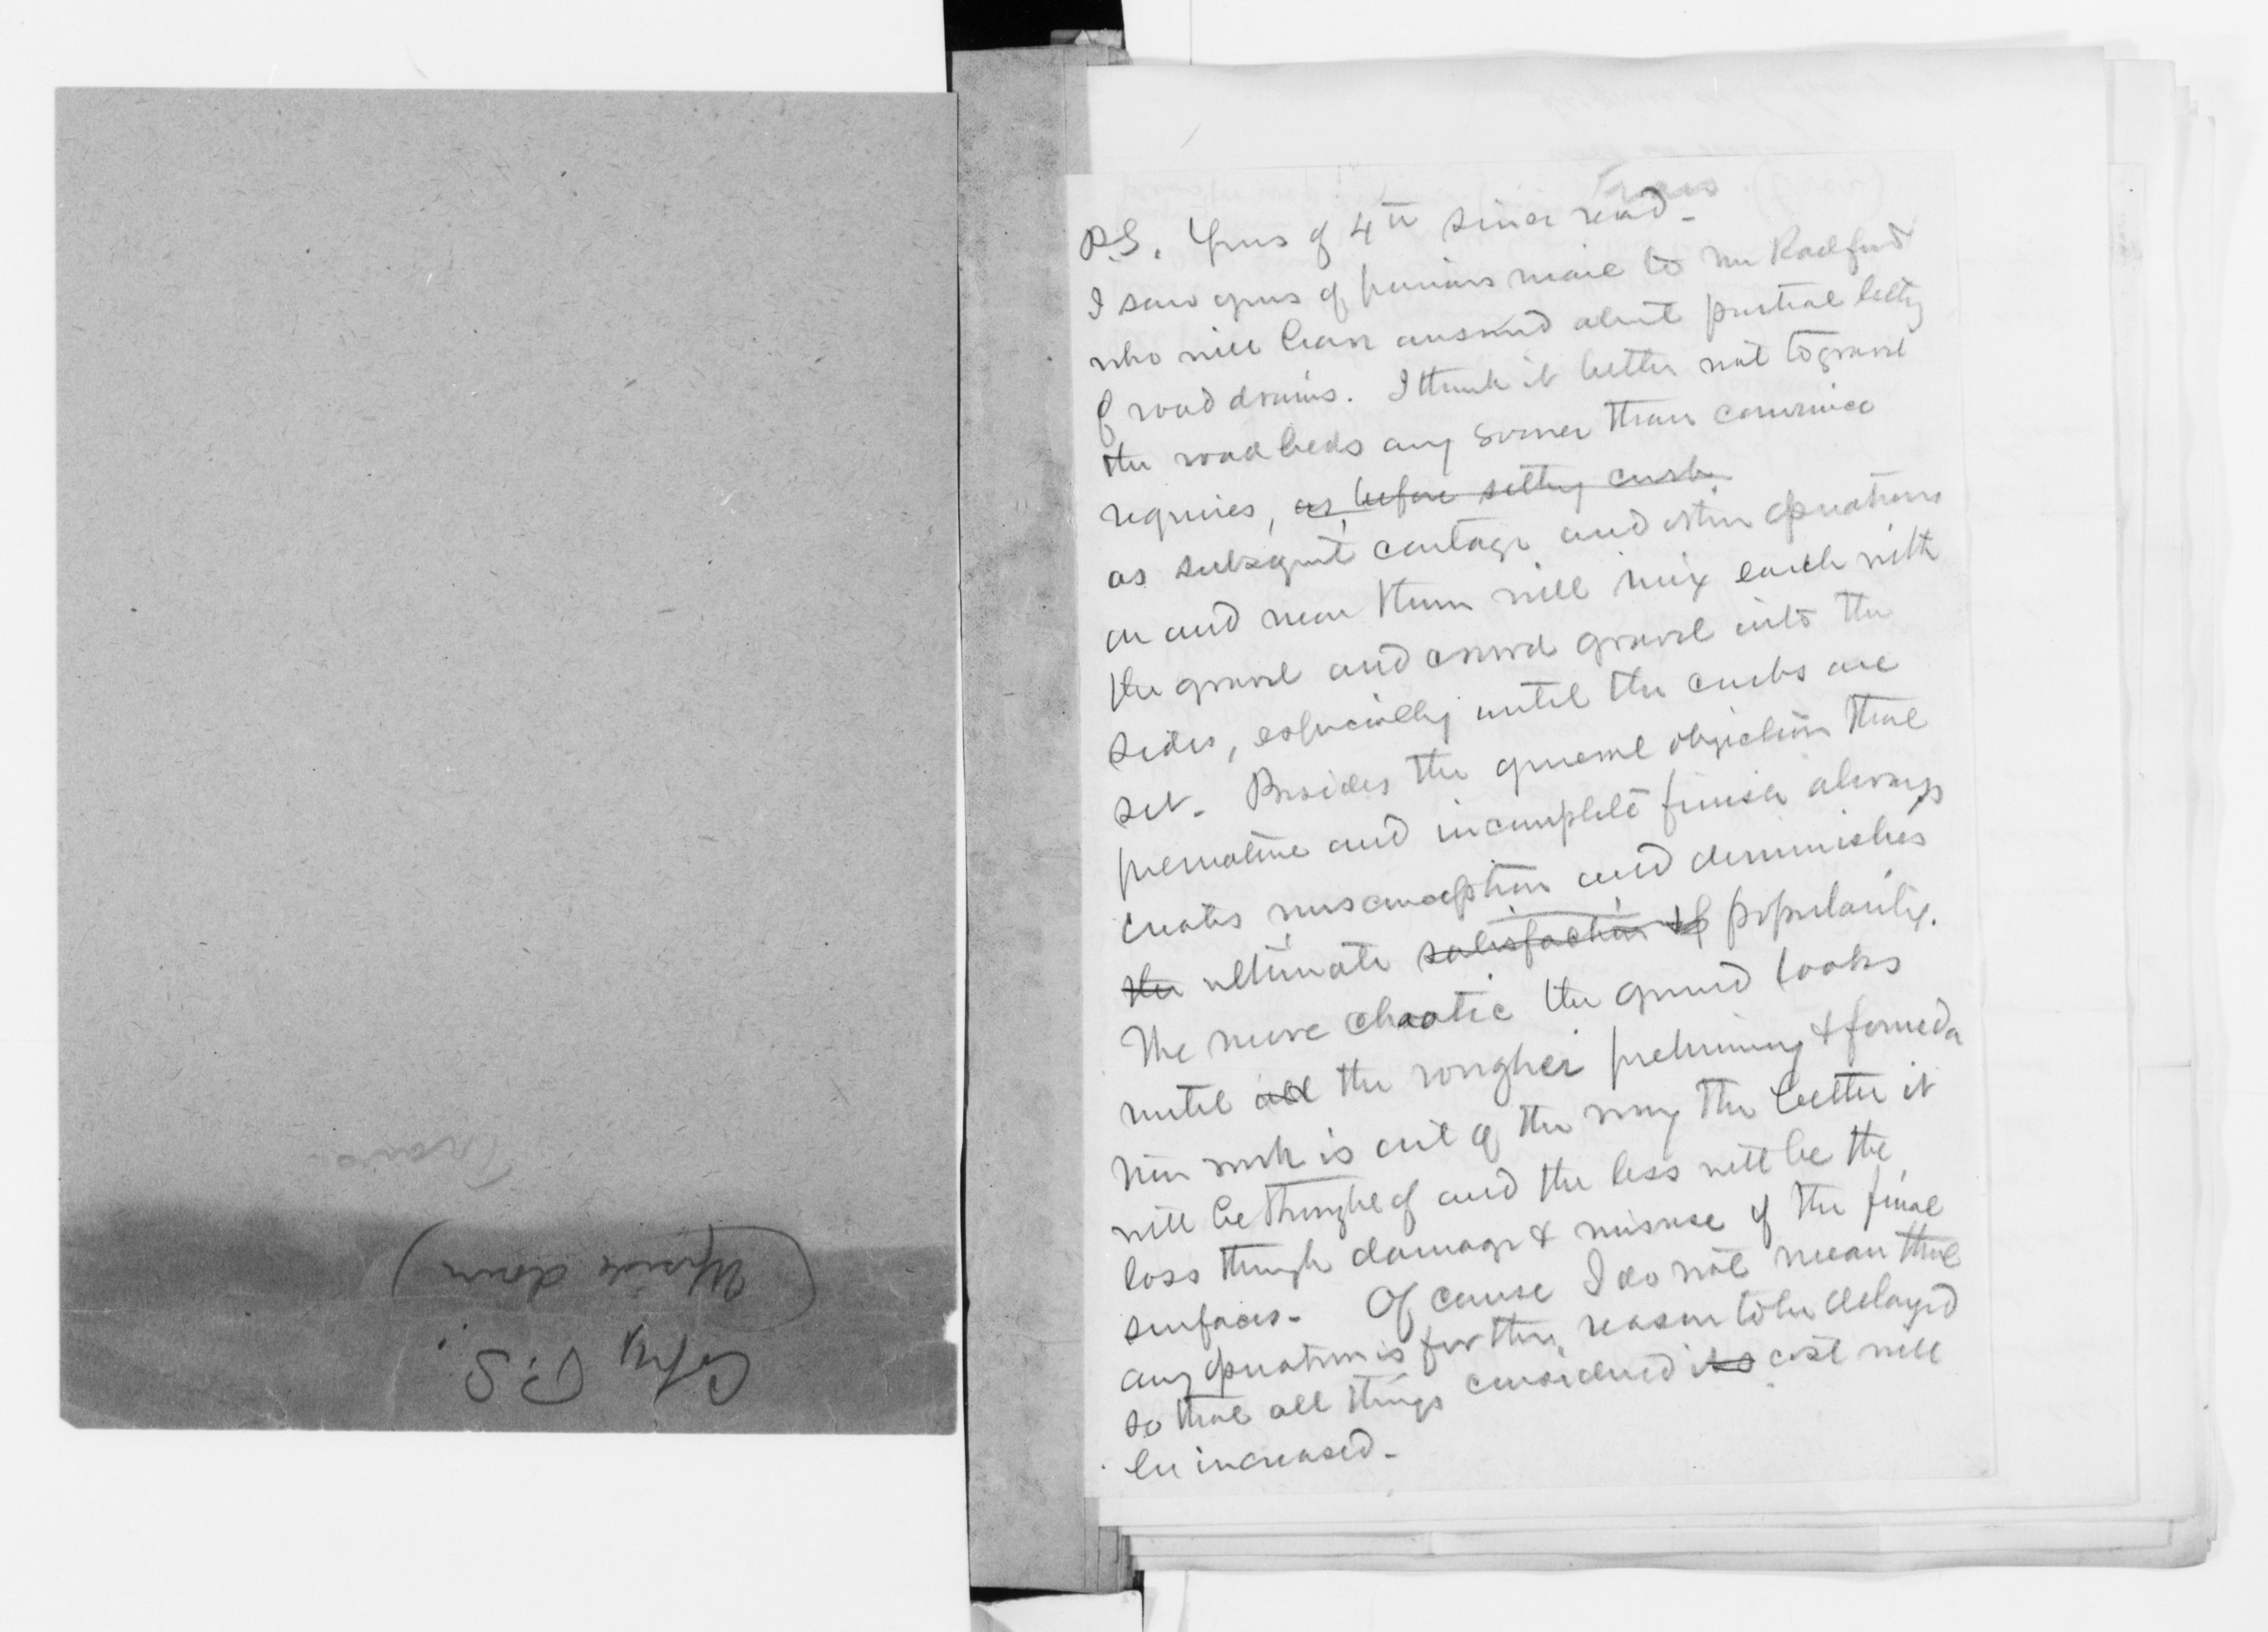 Trans.
(Upside down)
Copy P.S.
Trans
P.S. Yrs of 4th since read -
I saw yrs of previous mail to Mr Radford
who will have answered about partial letting
of road drains. I think it better not to gravel
the road beds any sooner than convenience
requires, as before setting curb
as subsequent cartage and other operations
on and near them will mix earth with
the gravel and crowd gravel into the
sides, especially until the curbs are
set. Besides the general objection that
premature and incomplete finish always
creates misconception and diminishes
the ultimate satisfaction of popularity.
The more chaotic the ground looks
until all the rougher preliminary & foundation
work is out of the way the better it
will be thought of and the less will be the
loss through damage & misuse of the final
surfaces - Of course I do not mean that
any operation is for this reason to be delayed
so that all things considered its cost will
be increased -